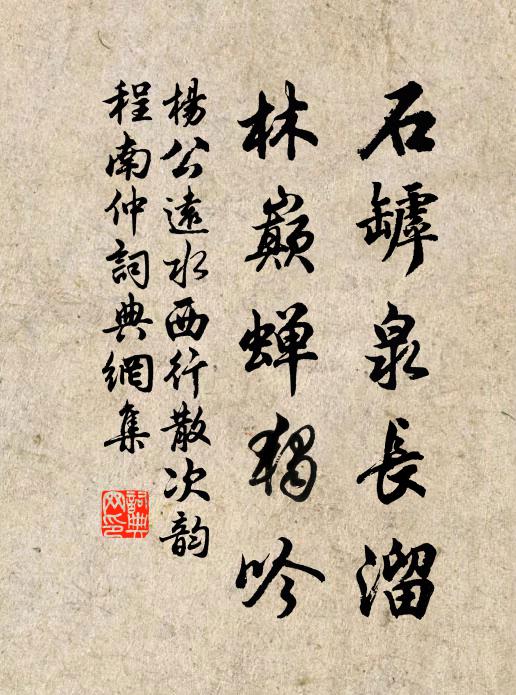 石罅泉長溜
林巔蟬獨吟
楊公遠水西行散次韵
程南仲詞典網集
詞典网印